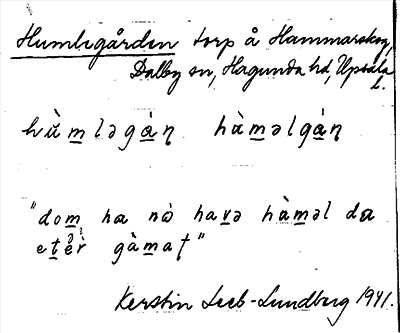 Humlegården torp å Hammarskog,
Dalby sn, Hagunda hd, Upsala
l.
hu̇̀m̲ləgȧ̀ṇ hu̇̀m̲əlgȧ̀ṇ
"dom̲ ha nȯ̀ hav̲ə hu̇̀m̲əl da
gȧ̀m̲aʈ"
Kerstin Leeb-Lundberg 1941.